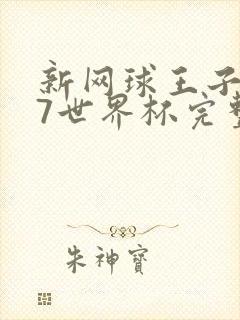 新网球王子
7世界杯完整
朱神寶